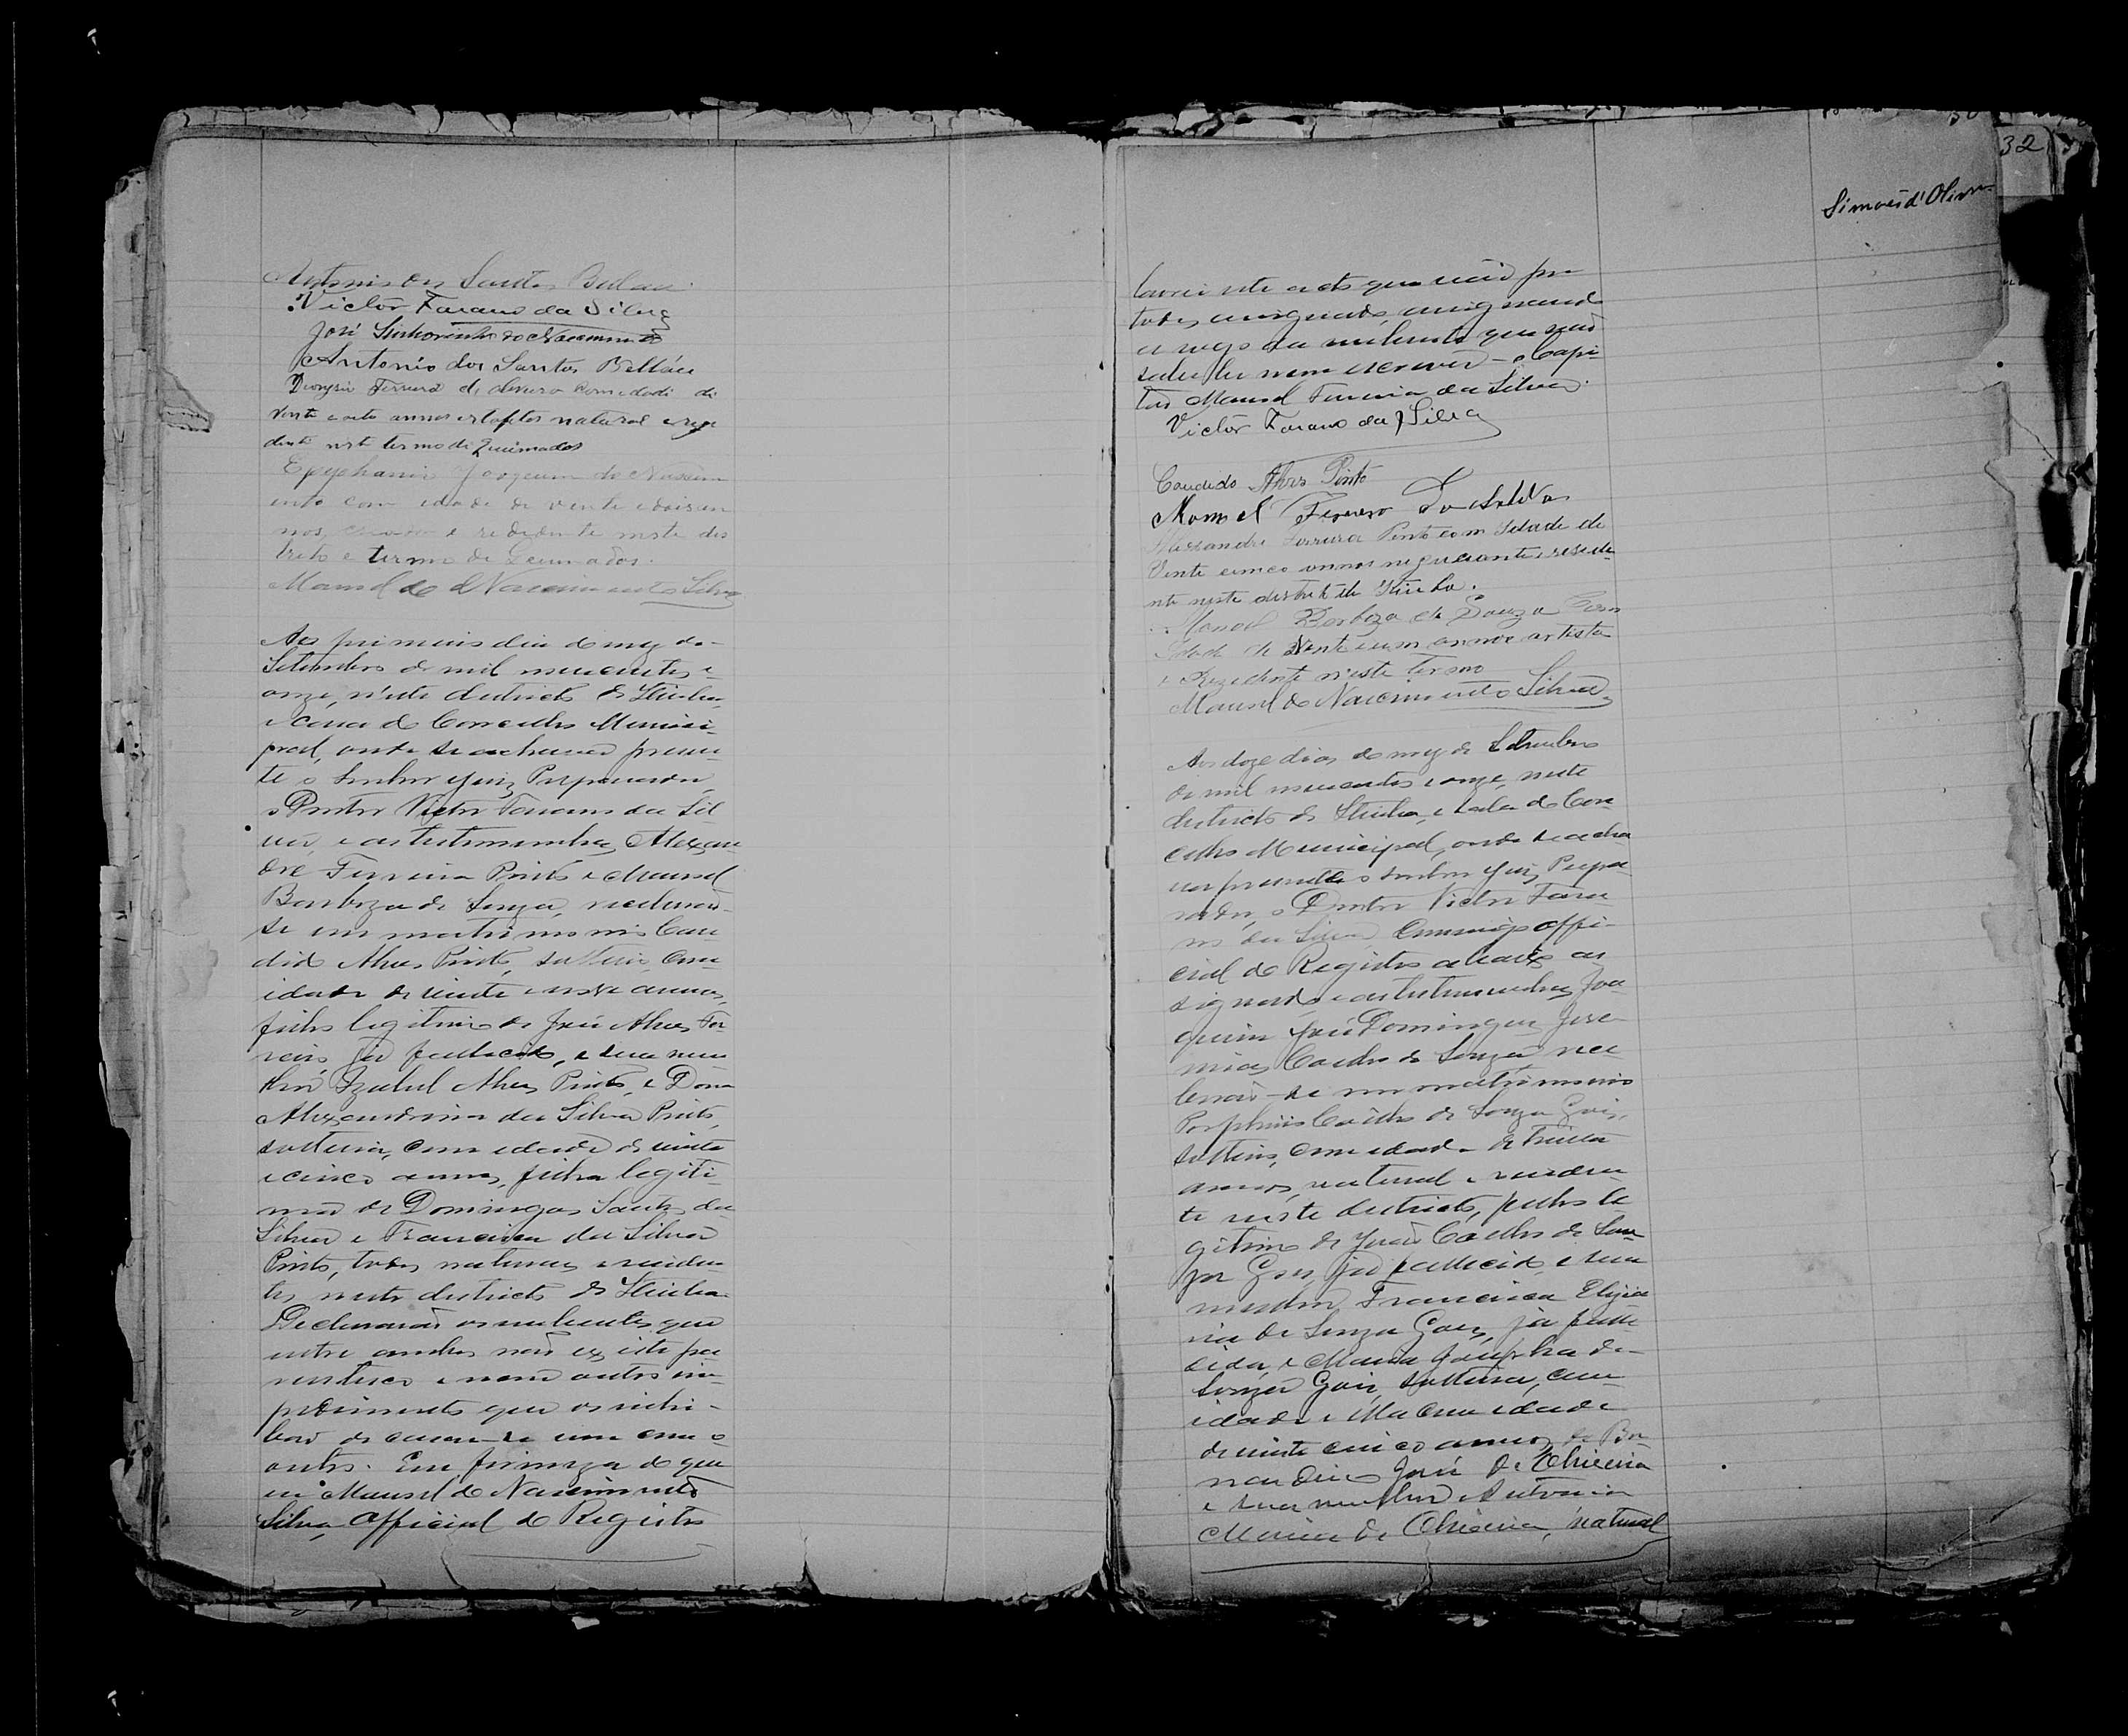 Antonio dos Santos
Victor Farano da Silva
José Senhorinho do Nascimento
Antonio dos Santos Beltão
Dionysio Ferreira de com edade de
vinte e oito annos natural e resi
dente nste termo de Queimados
Epyphanio do Nascim
ento com idade de vente e dois an
nos, e residente neste dis
treto e termo de Queimados.
Manoel do Nascimento Silva
Aos primeiro dia do mez de
Setembro de mil novecentos e
onze, n'este districto de Itiuba,
e casa do Conselho Munici
pal, onde se achava presen
te o Senhor Juiz Preparador,
o Doutor Victor Farano da Sil
va, e as testemunhas Alexan
dre Ferreira Pinto e Manoel
Barboza de Souza, receberão-
se em matrimonio Can
dido Alves Pinto, solteiro, com
idade de vinte e nove annos,
filho legitimo de José Alves
já fallecido, e sua mu
lher Izabel Alves Pinto, e Dona
Alexandrina da Silva Pinto,
solteira, com edade de vinte
e cinco annos, filha legiti-
ma de Domingos Santos da
Silva e Francisca da Silva
Pinto, todos naturaes e residen
tes neste districto de Itiuba.
Declararão os nubentes que
entre ambos não existe pa
rentesco e nem outro im-
pedimento que os inhi-
bão de casar-se um com o
outro. Em firmeza do que
eu Manoel do Nascimento
Silva Official do Registro
32
Simões d'Olivra
lavrei este acto que vai por
todos assignado, assignando
a rogo da nubente que não
sabe ler nem escrever o Capi
tão Manoel Ferreira da Silva.
Victor Farano da Silva
Candido Alves Pinto
Manoel Ferrera da Silva
Alexandre Ferrera Pinto com Idade de
Vente cinco annos negociante reside
nte neste destrito de Itiuba.
Manoel Barboza de Souza Com
Idade de Vente e um annos artista
e Rezedente n'este termo
Manoel do Nascimento Silva
Aos doze dias do mez de Setembro
de mil novecentos e onze, neste
districto de Itiuba, e Sala do Con
celho Municipal, onde se acha
va presente o Senhor Juiz Prepa
rador, o Doutor Victor Fara
no da Silva, Commigo offi-
cial do Registro abaixo as
signado e as testemunhas Joa
quim José Domingues Jere
mias Coelho de Souza rece
berão-se em matrimonio
Porphirio Coelho de Souza Goes,
solteiro, com edade de trinta
annos, natural e residen
te neste districto, filho le
gitimo de João Coelho de Sou
za Goes, já fallecido, e sua
mulher Francisca
de Souza Goes, já falle
cida, e Maria Josepha de
Souza Goes, solteira, com
idade e Ma com edade
de vinte cinco annos de Ber
nardino José de Oliveira
e sua mulher Antonia
Maria de Oliveira, natural